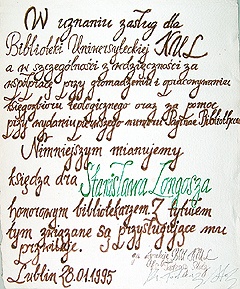 W uznaniu zasług dla
Biblioteki Uniwersyteckiej KUL
a w szczególności z wdzięczności za
współpracę przy gromadzeniu i opracowywaniu
księgozbioru teologicznego oraz za pomoc
przy wydaniu pierwszego numeru
Niniejszym mianujemy
księdza dra Stanisława Longosza
honorowym bibliotekarzem. Z tytułem
tym związane są przysługujące mu
przywileje.
Lublin 28.01.1995